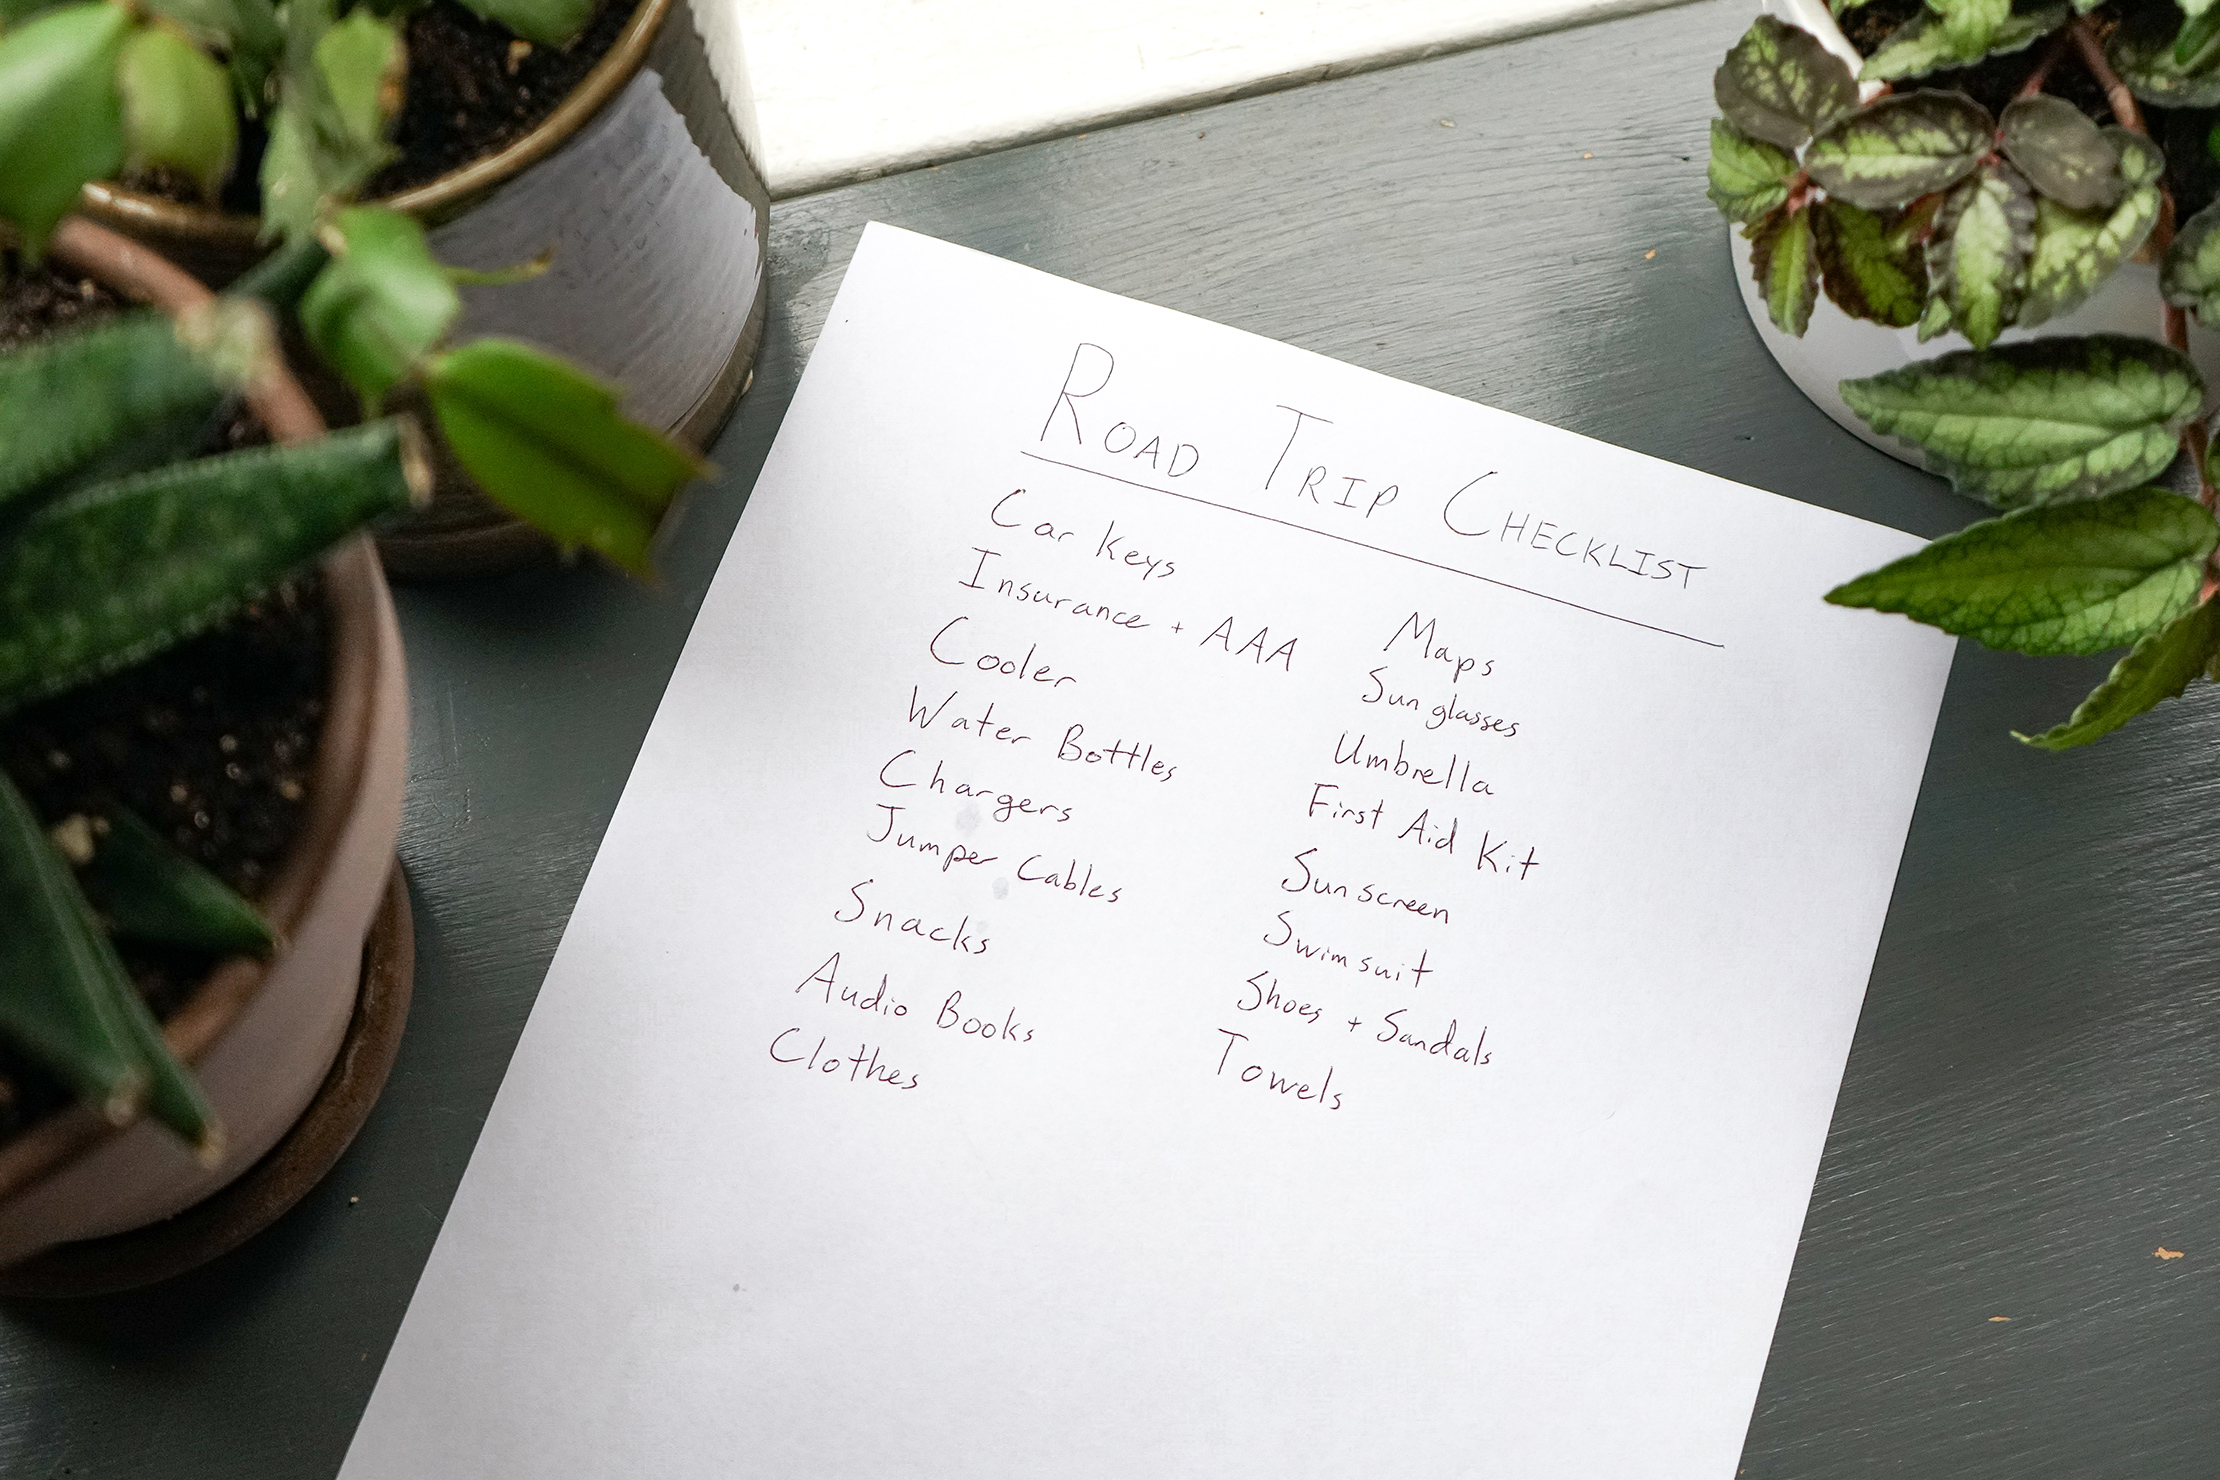 ROAD TRIP CHECKLIST
Car Keys
Insurance + AAA
Cooler
Water Bottles
Chargers
Jumper Cables
Snacks
Audio Books
Clothes
Maps
Sunglasses
Umbrella
First Aid Kit
Sunscreen
Swimsuit
Shoes + Sandals
Towels